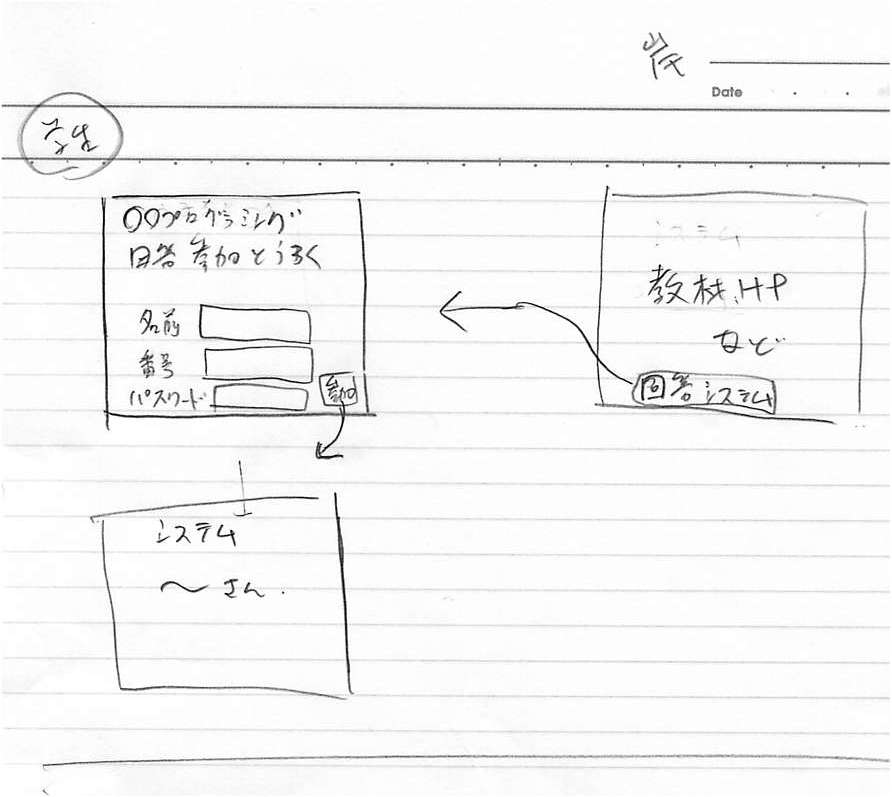 Date
学生
○○プログラミング
回答参加とうろく
名前
番号
パスワード
参加
システム
教材、HP
など
回答システム
システム
〜さん.